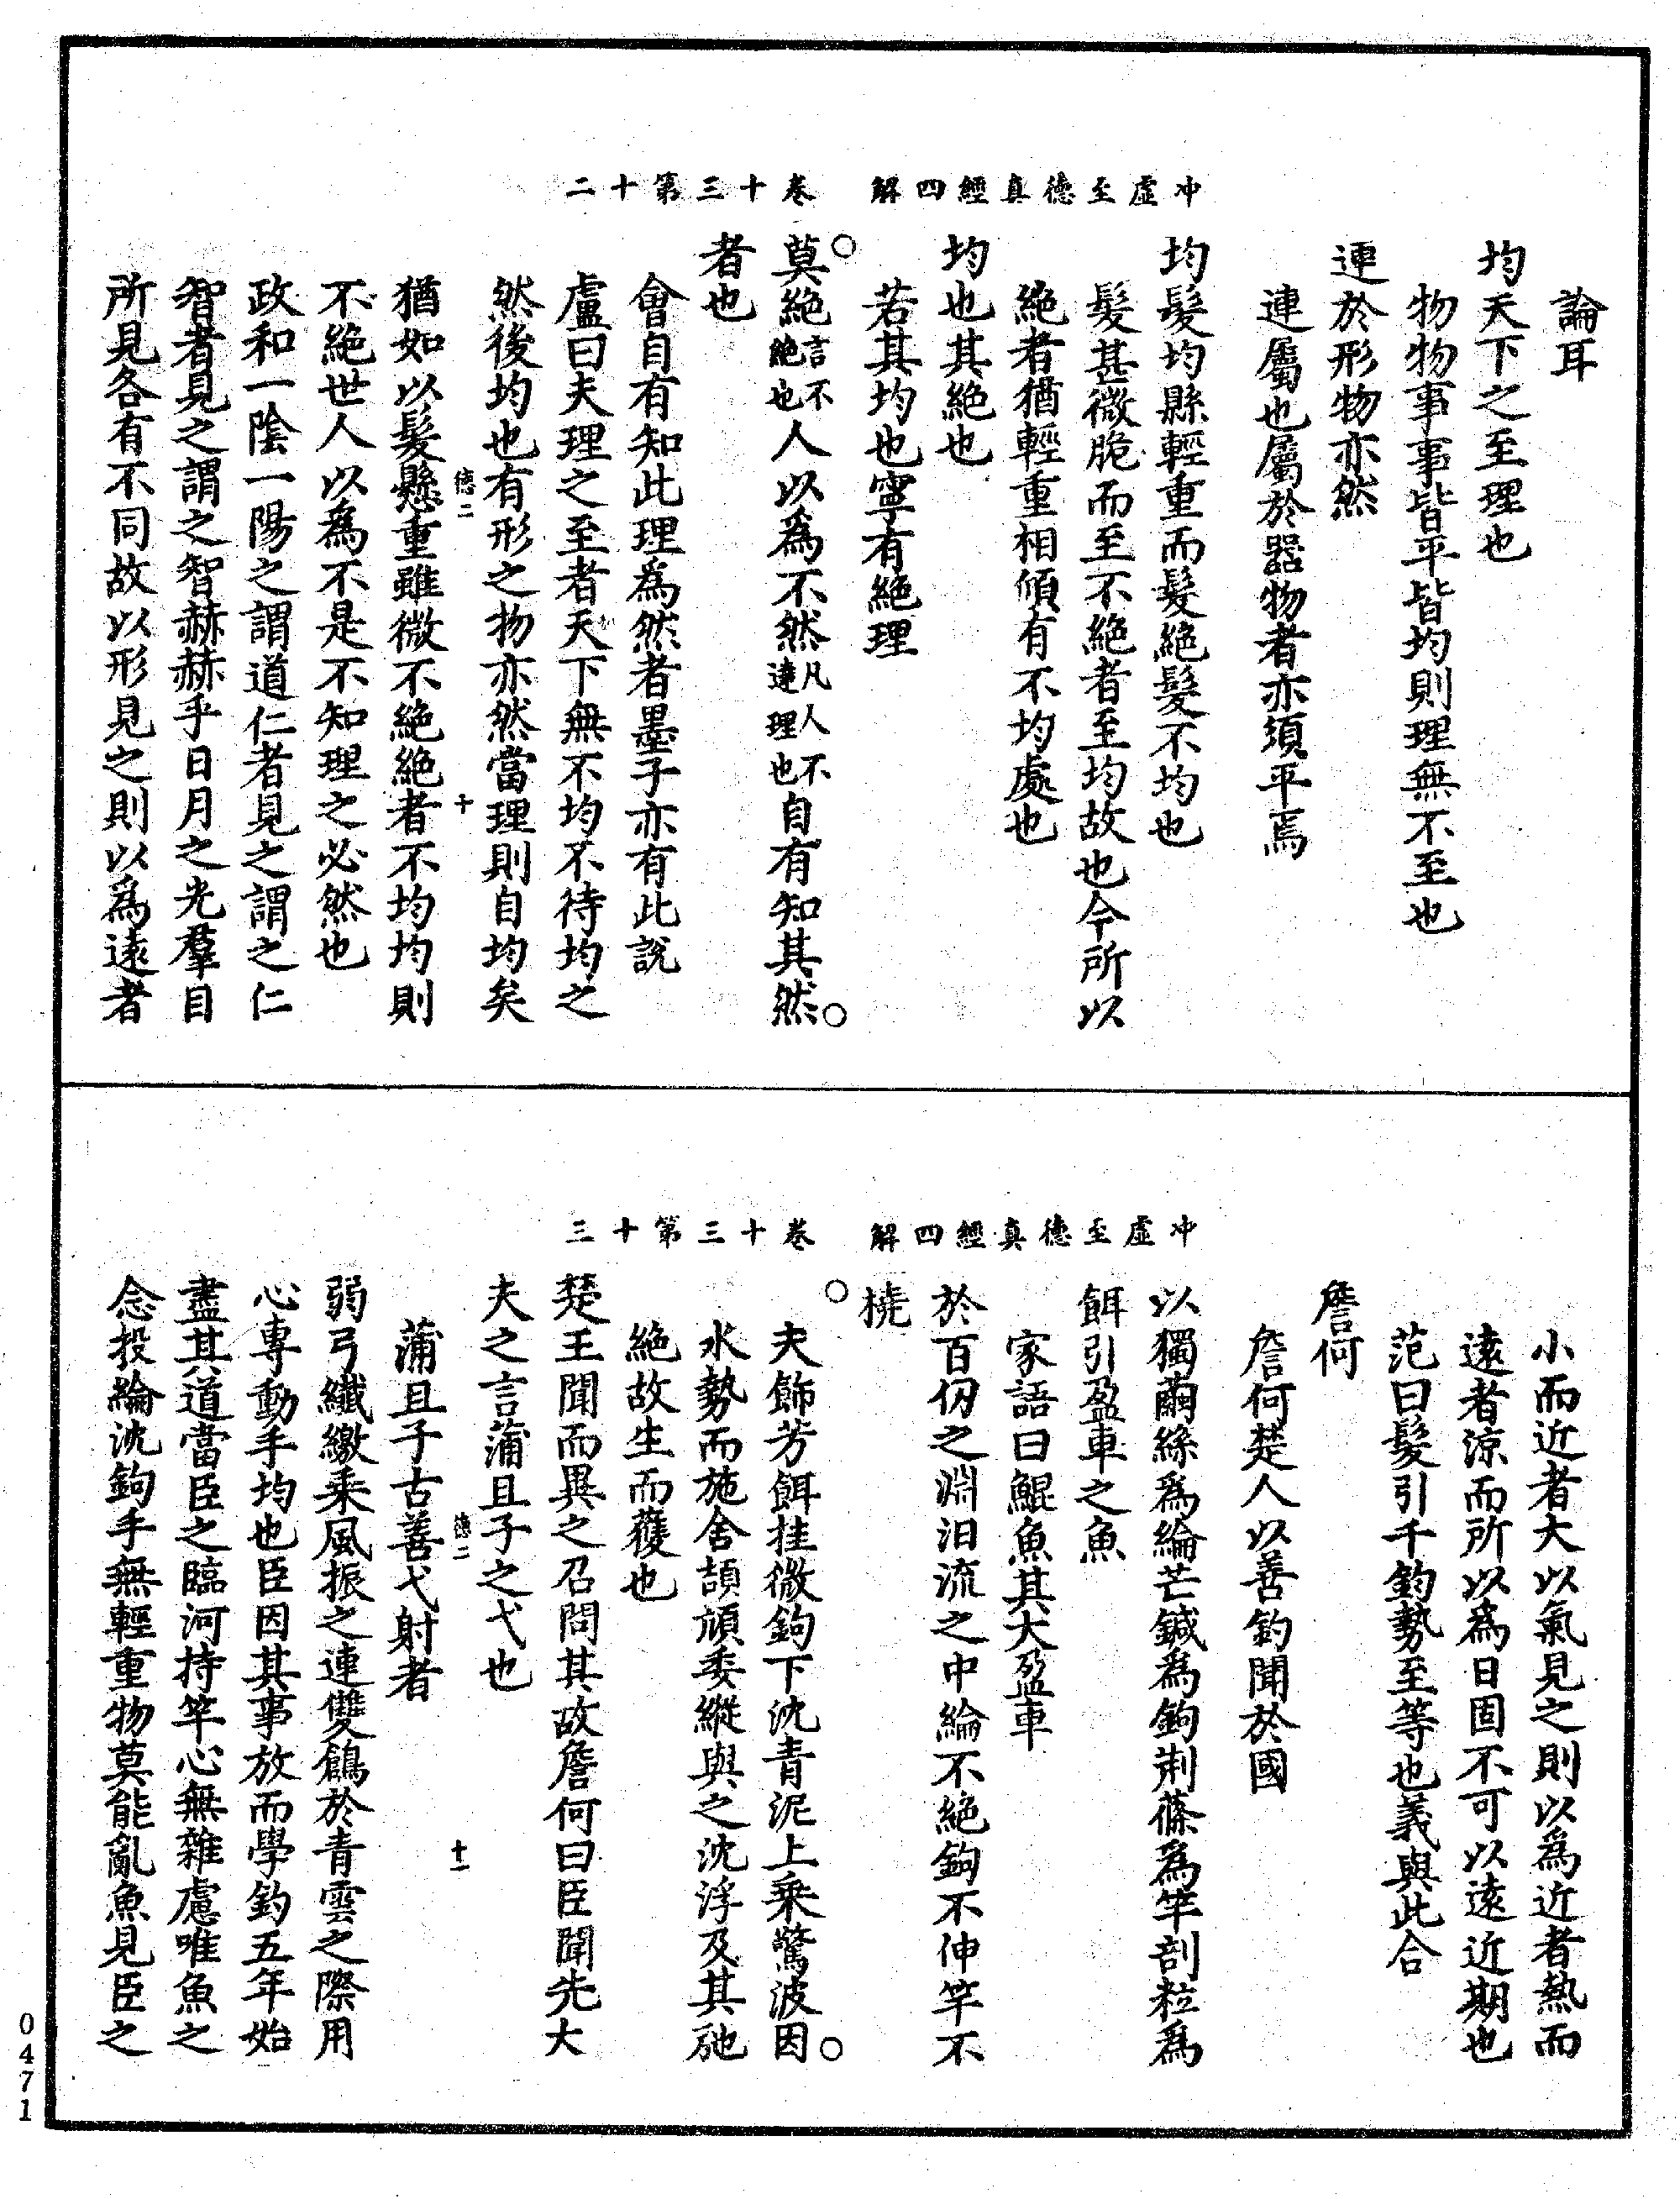 沖虛至德真經四解　卷十三第十二
論耳
均天下之至理也
物物事事皆平皆均則理無不至也
連於形物亦然
連屬也屬於器物者亦須平焉
均髮均縣輕重而髮絕髮不均也
髮甚微脆而至不絕者至均故也今所以
絕者猶輕重相傾有不均處也
均也其絕也
若其均也寧有絕理
○莫絕言不絕也人以為不然凡人不達理也自有知其然○
者也
會自有知此理為然者墨子亦有此說
盧曰夫理之至者天下無不均不待均之
然後均也有形之物亦然當理則自均矣
德二　十
猶如以髮懸重雖微不絕絕者不均均則
不絕世人以為不是不知理之必然也
政和一陰一陽之謂道仁者見之謂之仁
智者見之謂之智赫赫乎日月之光羣目
所見各有不同故以形見之則以為遠者
沖虛至德真經四解　卷十三第十三
小而近者大以氣見之則以為近者熱而
遠者涼而所以為日固不可以遠近期也
范曰髮引千鈞勢至等也義與此合
詹何
詹何楚人以善釣聞於國
以獨繭絲為綸芒鍼為鉤荊蓧為竿剖粒為
餌引盈車之魚
家語曰鯤魚其大盈車
於百仞之淵汩流之中綸不絕鉤不伸竿不
橈
○夫飾芳餌挂微鉤下沈青泥上乘驚波因○
水勢而施舍頡頏委縱與之沈浮及其弛
絕故生而䕶也
楚王聞而異之召問其故詹何曰臣聞先大
夫之言蒲且子之弋也
德二　十一
蒲且子古善弋射者
弱弓纖繳乘風振之連雙鶬於青雲之際用
心專動手均也臣因其事放而學釣五年始
盡其道當臣之臨河持竿心無雜慮唯魚之
念投綸沈鉤手無輕重物莫能亂魚見臣之
0471